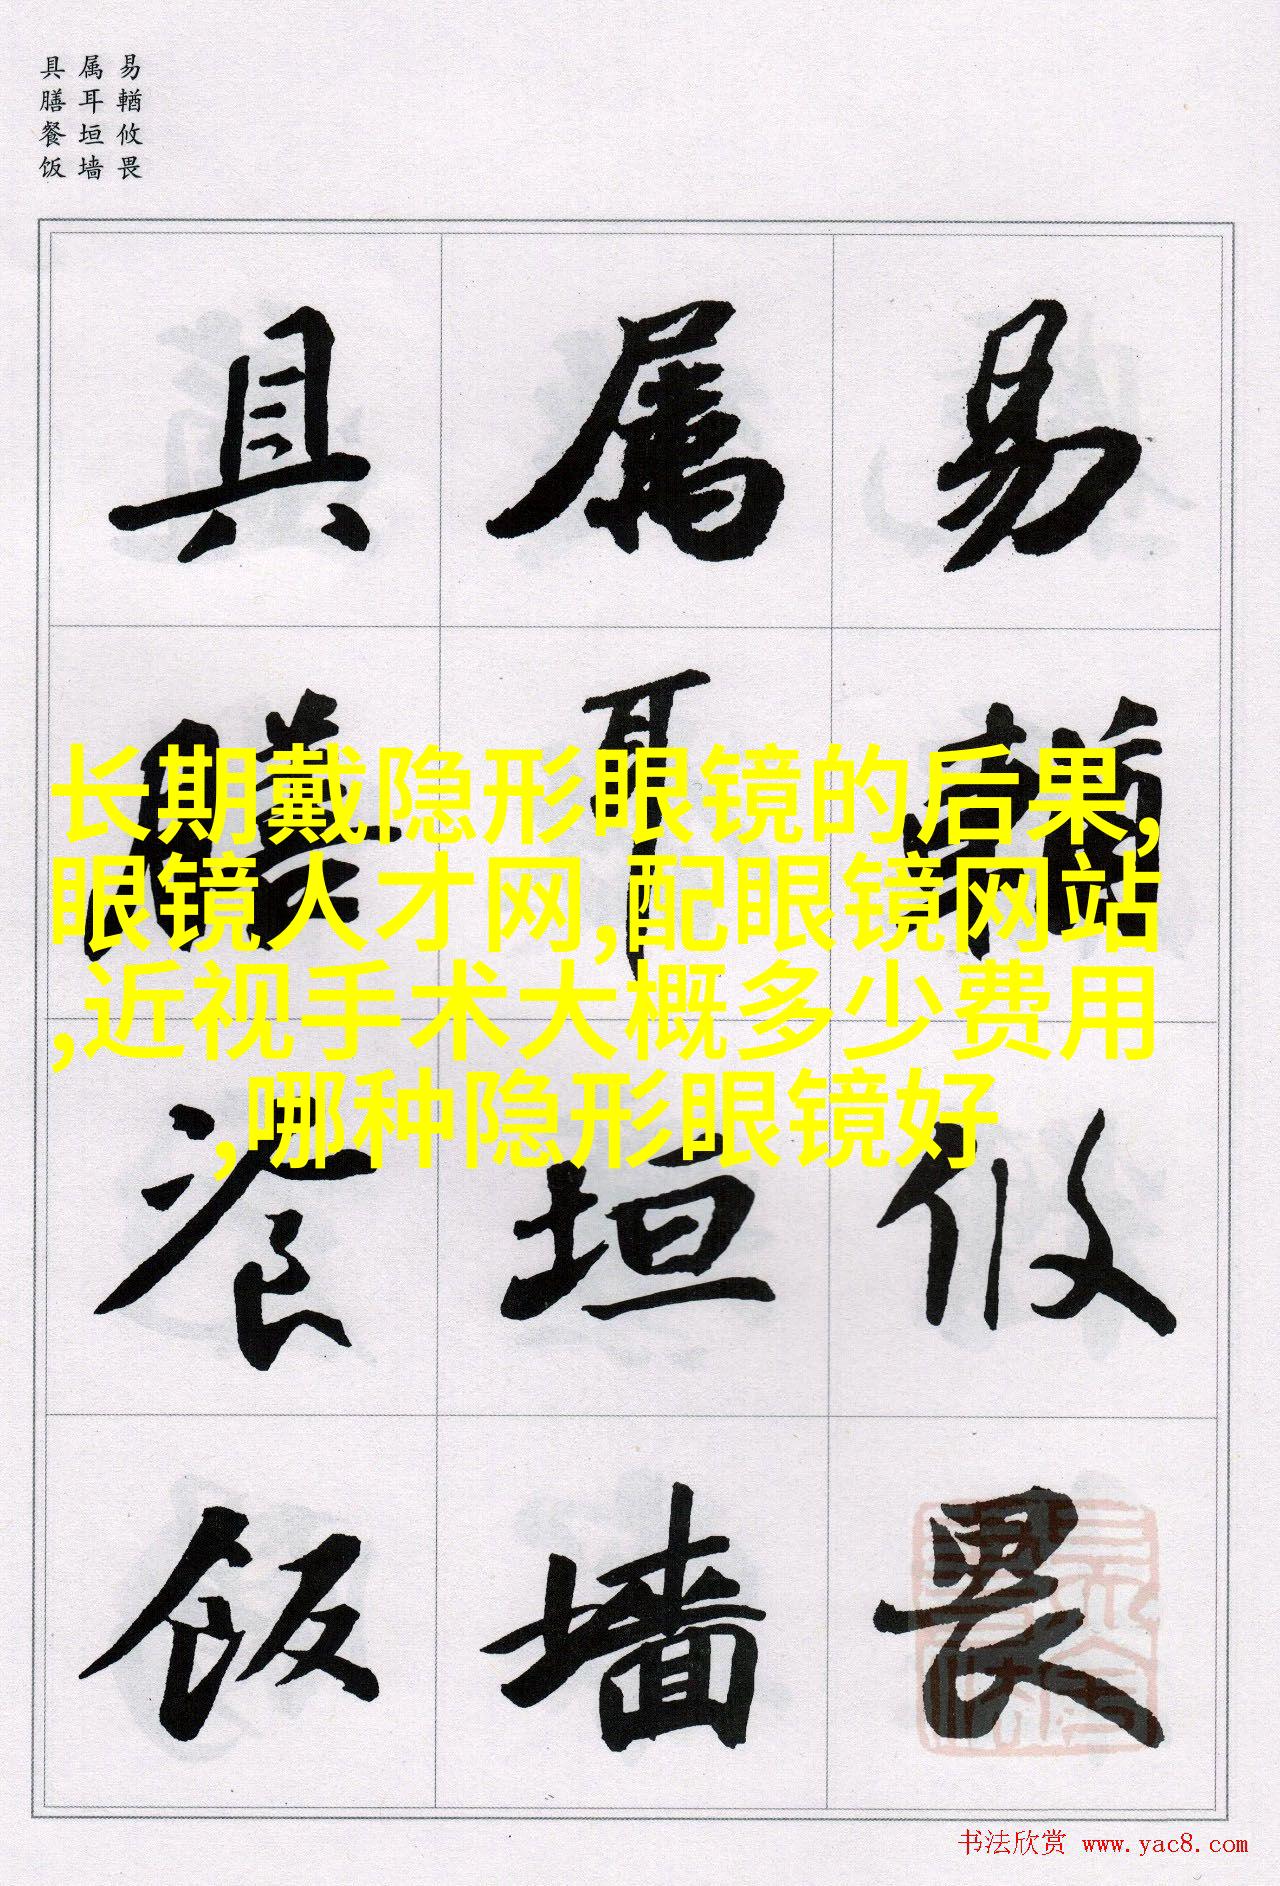 易輶攸畏
属耳垣墙
具膳餐饭
易
輶
攸
畏
属
耳
垣
墙
具
膳
餐
饭
长期戴隐形眼镜的后果,
眼镜人才网,配眼镜网站
,近视手术大概多少费用
,哪种隐形眼镜好
书法欣赏 www.yac8.com